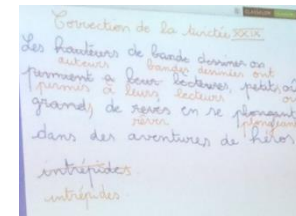 Correction de la dictée XXIX
Les hauteurs de bande dessiner on
auteurs bandes dessinées ont
permient a leur lecteures, petits où
permis à leurs lecteurs ou
grands, de reves en se plongant
rêver plongeant
dans des aventures de héros
intrépides.
intrépides.